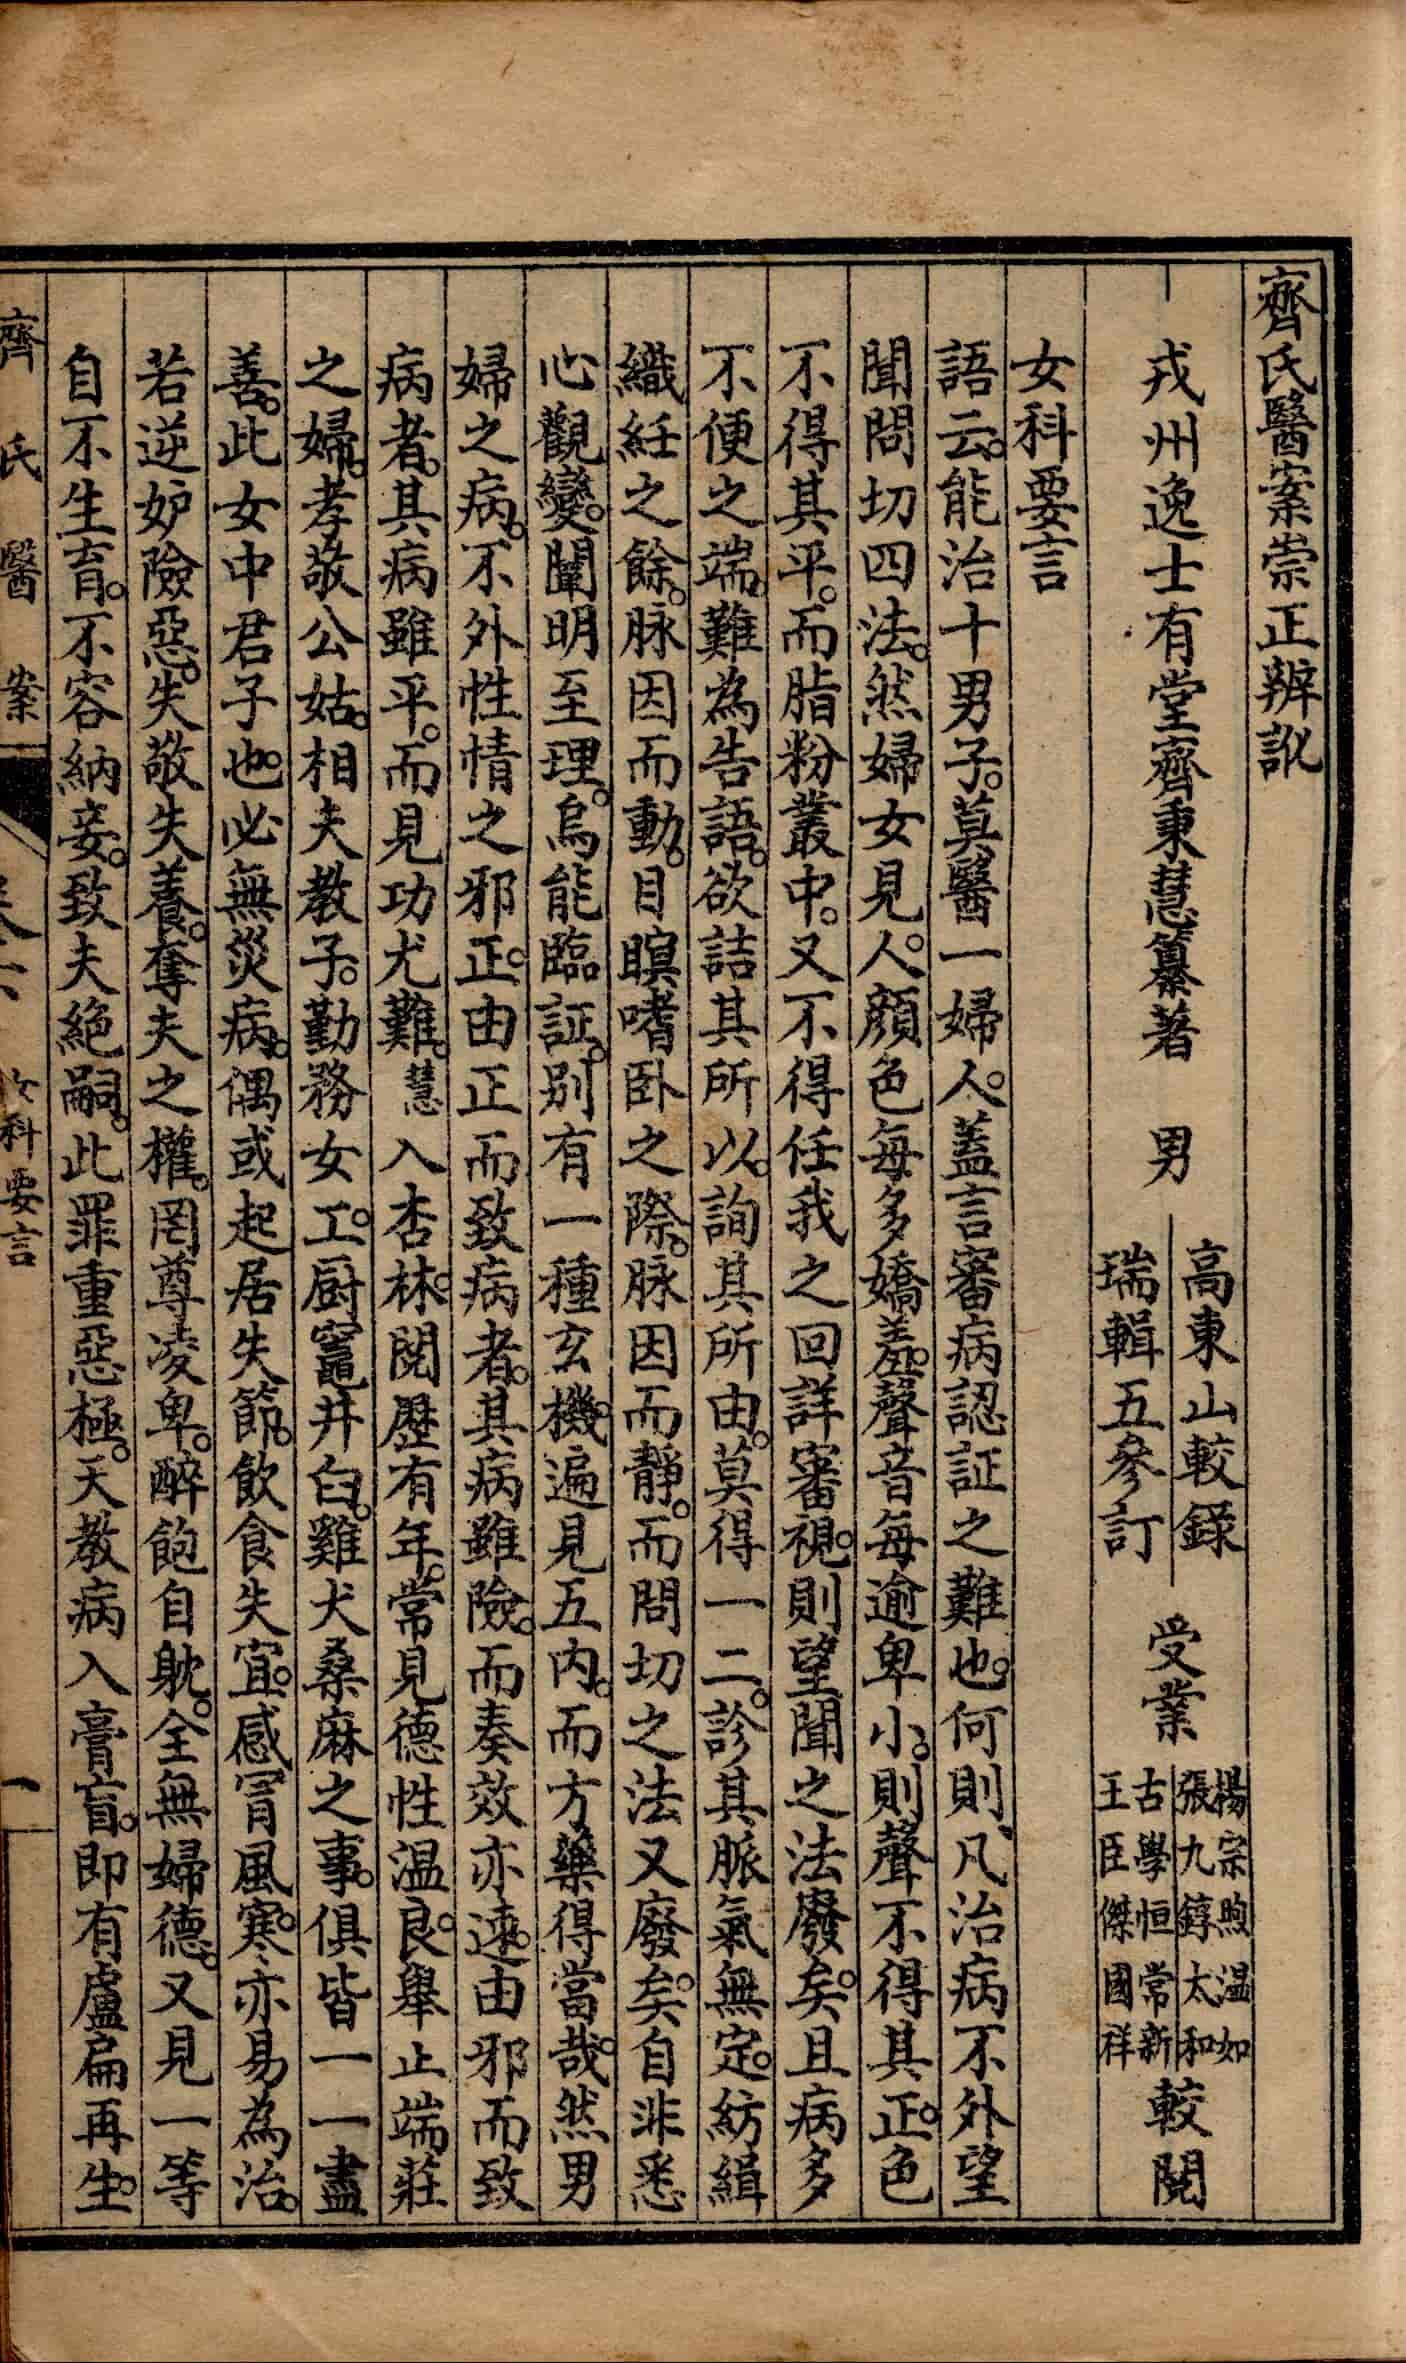 齊氏醫案崇正辨訛
戎州逸士有堂齊秉慧纂著　男　高東山較錄　瑞輯五參訂　受業　楊宗煦溫如　張九錞太和　古學恒常新　王臣傑國祥　較閱
女科要言
語云。能治十男子。莫醫一婦人。蓋言審病認証之難也。何則、凡治病不外望
聞問切四法。然婦女見人。顔色每多嬌羞。聲音每逾卑小。則聲不得其正。色
不得其平。而脂粉叢中。又不得任我之回詳審視。則望聞之法廢矣。且病多
不便之端。難為告語。欲詰其所以。詢其所由。莫得一二。診其脈氣無定。紡緝
織紝之餘。脉因而動。目瞑嗜卧之際。脉因而靜。而問切之法又廢矣。自非悉
心觀變。闡明至理。烏能臨証。别有一種玄機。遍見五内。而方藥得當哉。然男
婦之病。不外性情之邪正。由正而致病者。其病雖險。而奏效亦速。由邪而致
病者。其病雖平。而見功尤難。慧入杏林。閱歷有年。常見德性温良。舉止端莊
之婦。孝敬公姑。相夫教子。勤務女工。厨竈井臼。雞犬桑麻之事。俱皆一一盡
善。此女中君子也。必無災病。偶或起居失節。飲食失宜。感冐風寒。亦易為治。
若逆妒險惡。失敬失養。奪夫之權。罔尊凌卑。醉飽自躭。全無婦德。又見一等
自不生育。不容納妾。致夫絶嗣。此罪重惡極。天教病入膏肓。即有盧扁再生。
齊氏醫案　卷六　女科要言　一